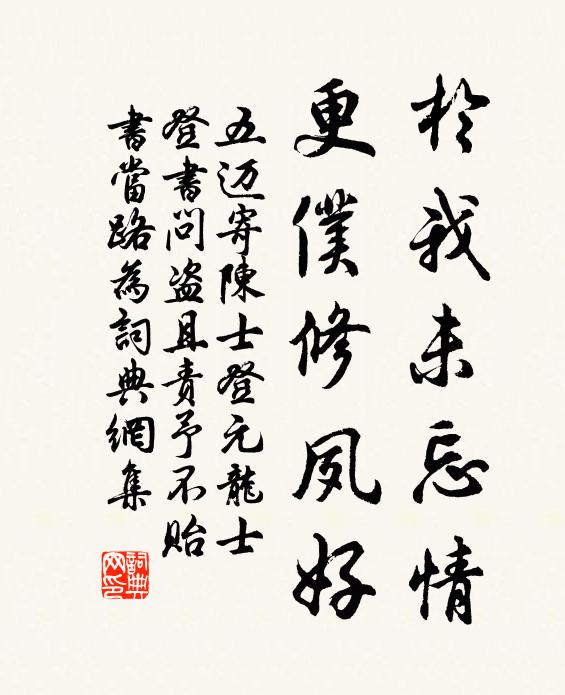 於我未忘情
更僕修夙好
五迈寄陳士登元龍士
登書問盗且責予不貽
書當路為詞典網集
詞典
网印